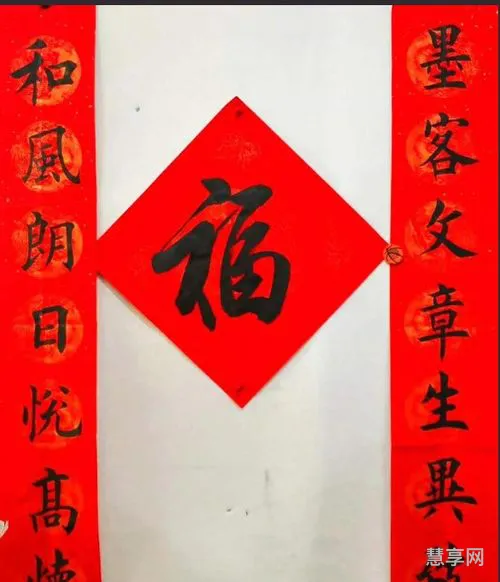 墨客文章生異
福
和風朗日悦髙
慧享网